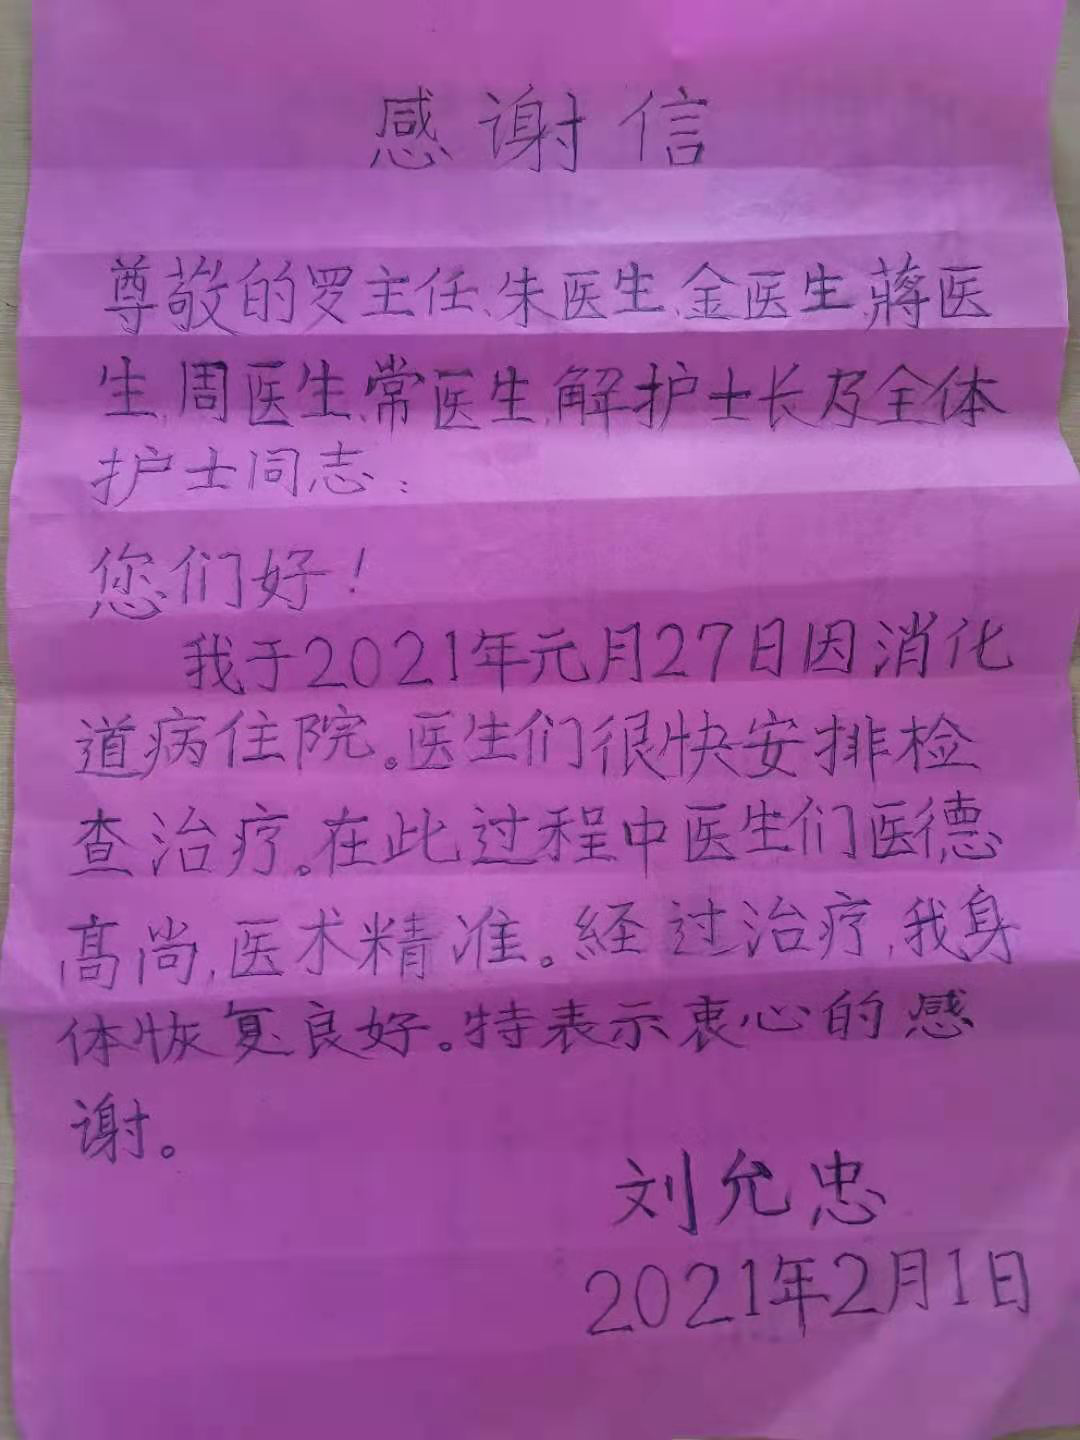 感谢信
尊敬的罗主任、朱医生、金医生、蔣医
生、周医生、常医生、解护士长及全体
护士同志：
您们好！
我于2021年元月27日因消化
道病住院。医生们很快安排检
查治疗。在此过程中医生们医德
高尚,医术精准。経过治疗,我身
体恢复良好。特表示衷心的感
谢。
刘允忠
2021年2月1日